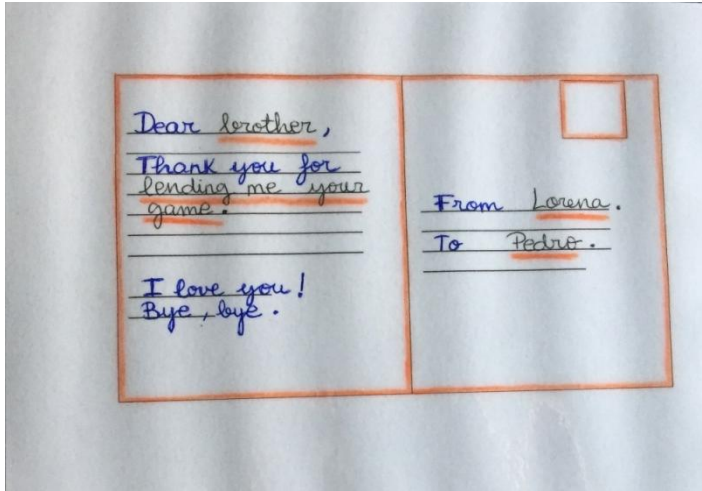 Dear brother,
Thank you for
lending me your
game.
I love you!
Bye, bye.
From Lorena.
To Pedro.